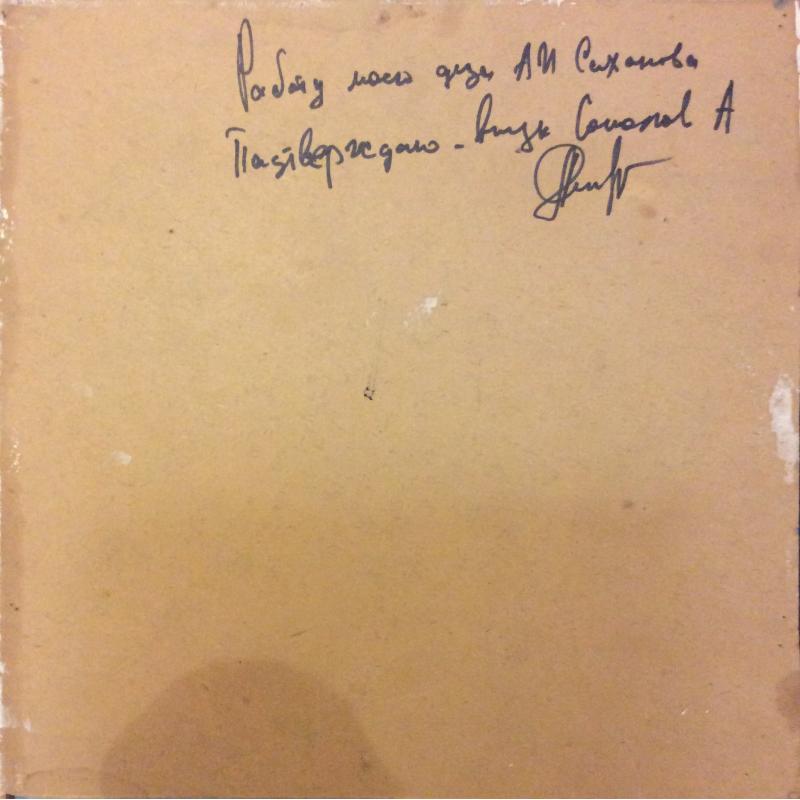 Работу моего деда АИ Суханова
Подтверждаю - внук Соколов А